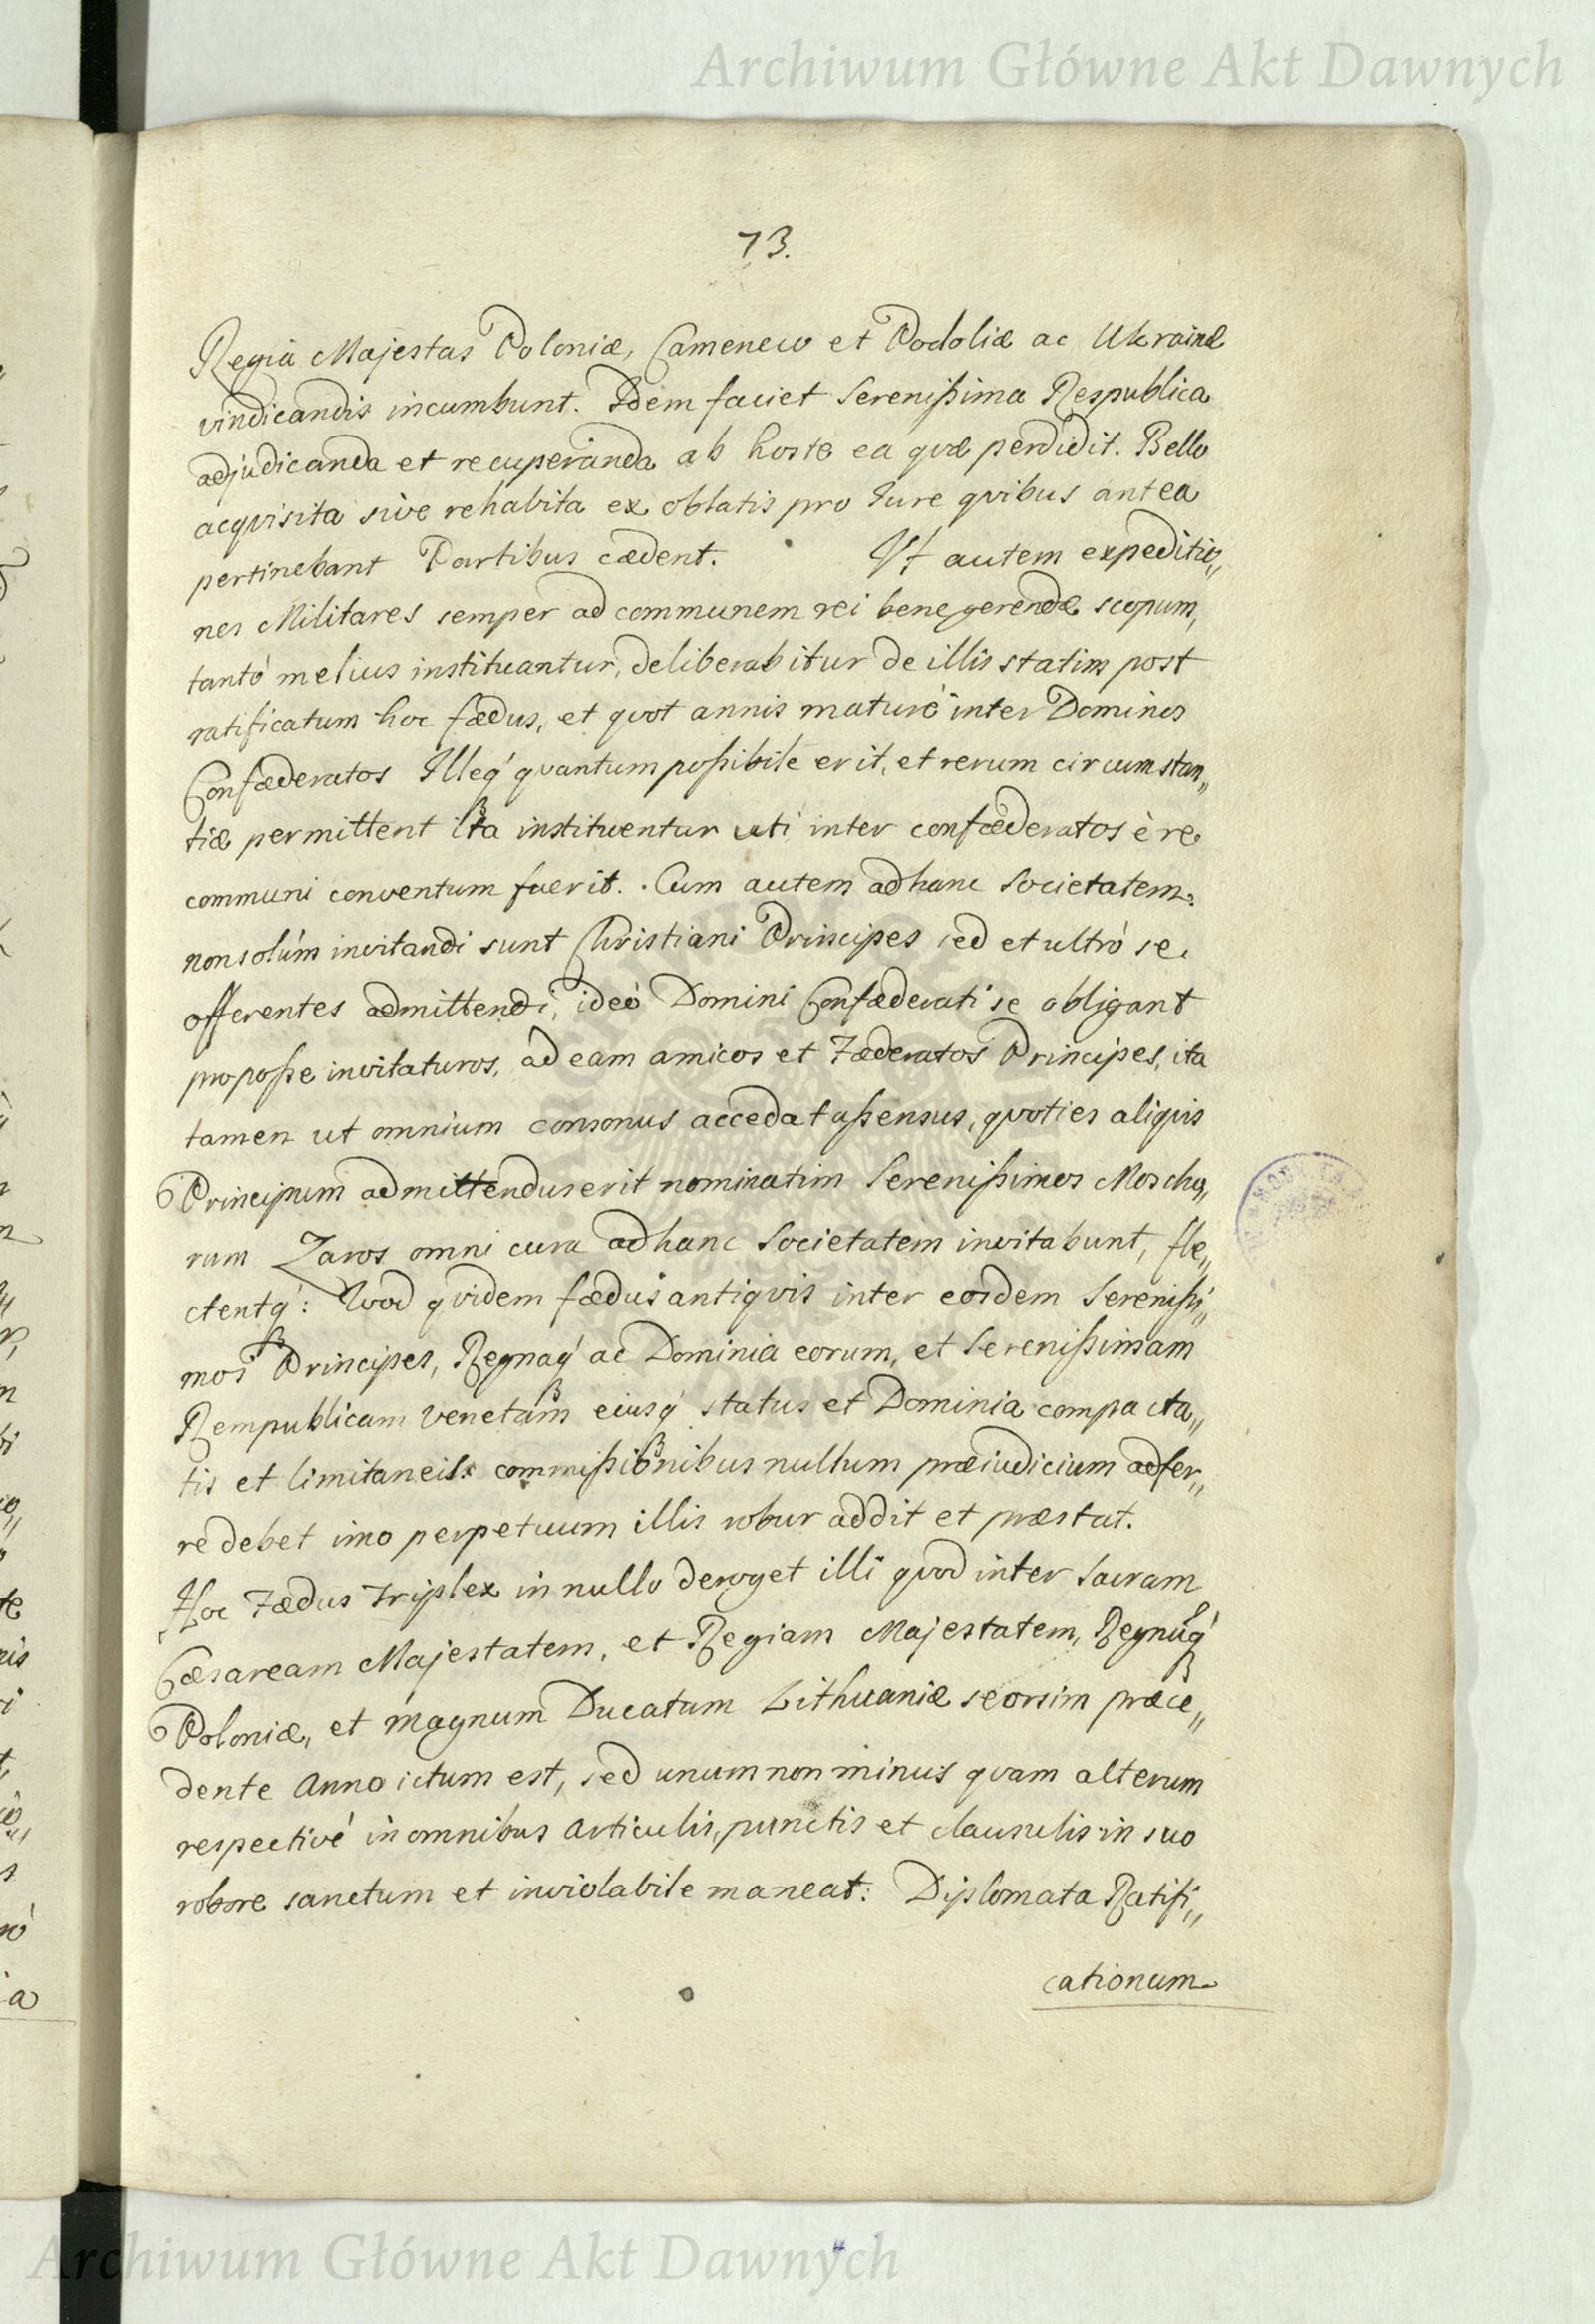 Archiwum Główne Akt Dawnych
73.
Regia Majestas Poloniæ, Camenew et Podoliæ ac Ukrainæ
vindicandis incumbunt. Idem faciet Serenißima Respublica
adjudicanda et recuperanda ab hoste ea quæ perdidit. Bello
acqvisita sive rehabita ex oblatis pro Jure qvibus antea
pertinebant Partibus cædent. Ut autem expeditio„
nes Militares semper ad communem rei bene gerendæ scopum,
tantò melius instituantur, deliberabitur de illis statim post
ratificatum hoc fædus, et qvot annis maturè inter Dominos
Confæderatos Illeq́ qvantum poßibile erit, et rerum circumstan„
tiæ permittent ita instituentur uti inter confæderatos è re
communi conventum fuerit. Cum autem ad hanc Societatem
non solùm invitandi sunt Christiani Principes sed et ultrò se
offerentes admittendi, ideò Domini Confæderati se obligant
pro poße invitaturos, ad eam amicos et Fæderatos Principes, ita
tamen ut omnium consonus accedat aßensus, qvoties aliqvis
Principum admittendus erit nominatim Serenißimos Moscho„
rum Zaros omni cura ad hanc Societatem invitabunt, fle„
ctentq́: Qvod qvidem fædus antiqvis inter eosdem Serenißi„
mos Principes, Regnaq́ ac Dominia eorum, et Serenißimam
Rempublicam Venetam eiusq́ status et Dominia compacta„
tis et limitaneis commißionibus nullum præiudicium adfer„
re debet imo perpetuum illis robur addit et præstat.
Hoc Fædus triplex in nullo deroget illi qvod inter Sacram
Cæsaream Majestatem, et Regiam Majestatem, Regnuq́
Poloniæ, et magnum Ducatum Lithuaniæ seorsim præce„
dente Anno ictum est, sed unum non minus qvam alterum
respectivè in omnibus Articulis, punctis et clausulis in suo
robore sanctum et inviolabile maneat: Diplomata Ratifi„
cationum
Archiwum Główne Akt Dawnych